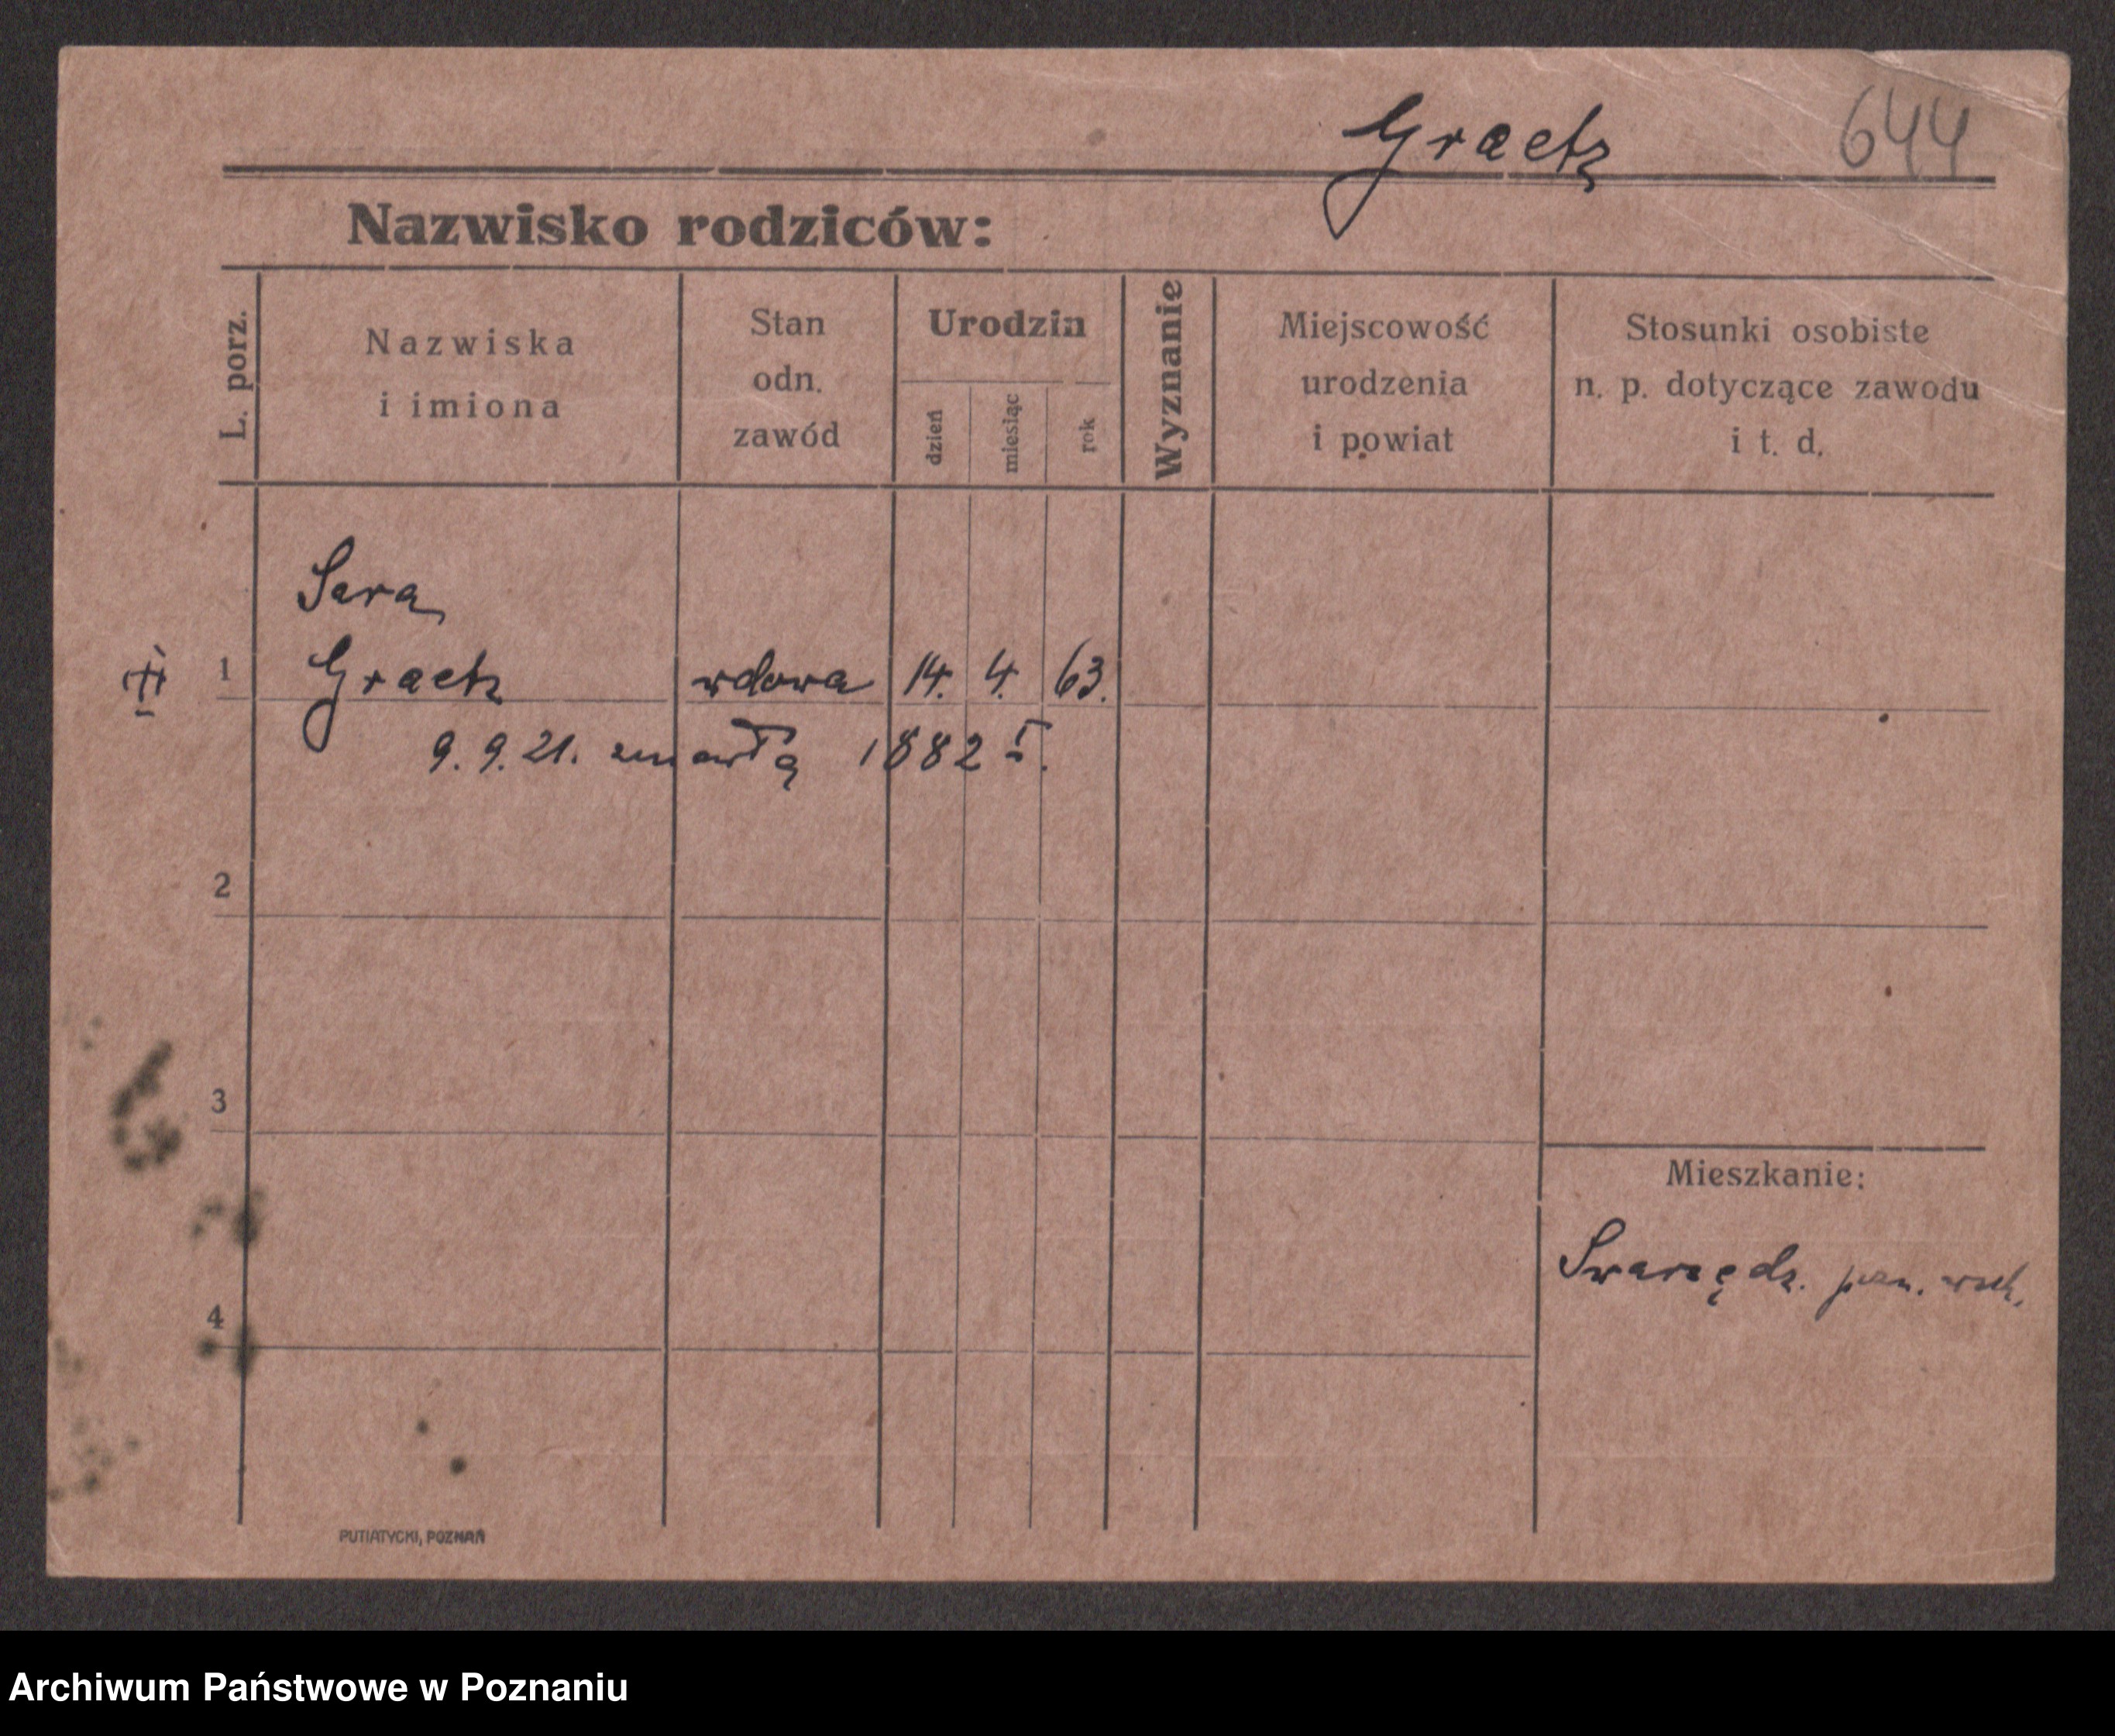 Graetz 644
Nazwisko rodziców:
L. porz.
Nazwiska
i imiona
Stan
odn.
zawód
Urodzin
dzień
miesiąc
rok
Wyznanie
Miejscowość
urodzenia
i powiat
Stosunki osobiste
n. p. dotyczące zawodu
i t. d.
Sara
1 Graetz wdowa 14. 4. 63.
9. 9. 21. zmarła 1882 I.
2
3
4
Mieszkanie:
Swarzędz. pozn. wsch.
PUTIATYCKI, POZNAŃ
Archiwum Państwowe w Poznaniu